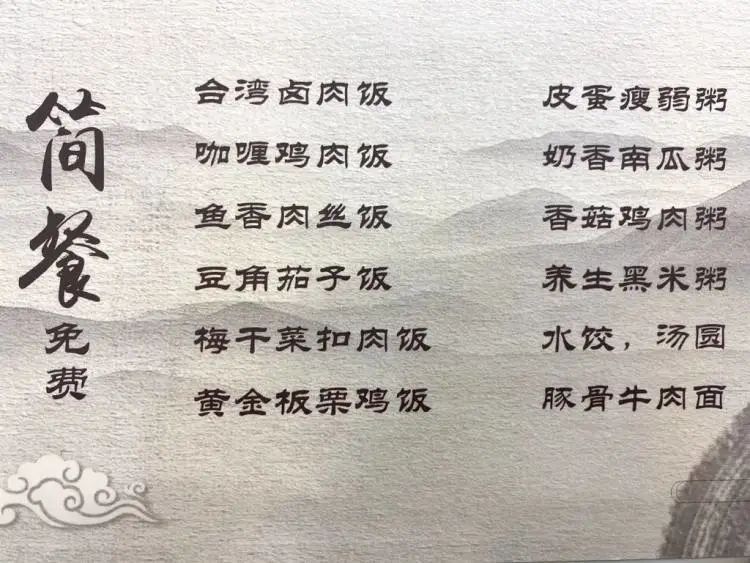 简餐
免费
台湾卤肉饭
咖喱鸡肉饭
鱼香肉丝饭
豆角茄子饭
梅干菜扣肉饭
黄金板栗鸡饭
皮蛋瘦弱粥
奶香南瓜粥
香菇鸡肉粥
养生黑米粥
水饺，汤圆
豚骨牛肉面